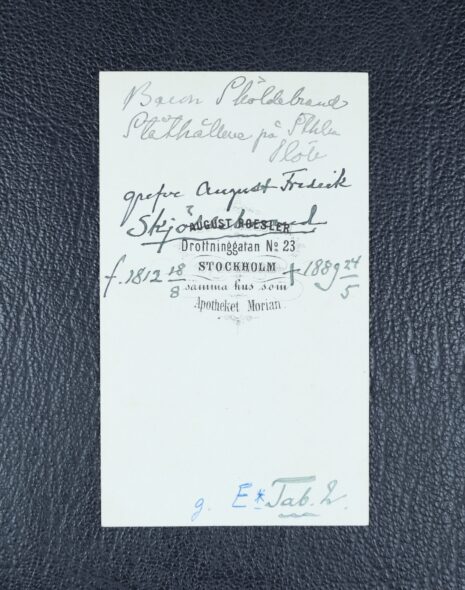 Baron Sköldebrand
Ståthållare på Sthlm
Slott
grefve August Fredrik
Skjöldebrand
AUGUST ROESLER
Drottninggatan No 23
f. 1812 18/8 STOCKHOLM † 1889 24/5
samma hus som
Apotheket Morian
g. E* Tab. 2.